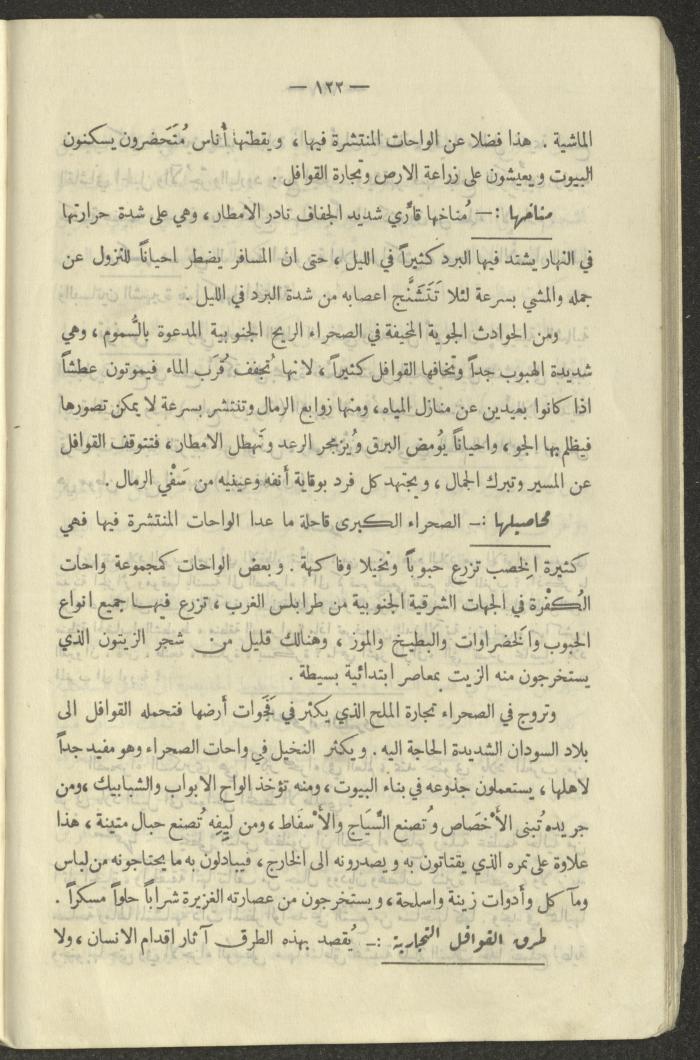 — ١٢٢ —
الماشية . هذا فضلا عن الواحات المنتشرة فيها ، ويقطنها أناس مُتَحضرون يسكنون
البيوت ويعيشون على زراعة الارض وتجارة القوافل .
مناخها :— مُناخها قارِّي شديد الجفاف نادر الامطار ، وهي على شدة حرارتها
في النهار يشتد فيها البرد كثيراً في الليل ، حتى ان المسافر يضطر احياناً للنزول عن
جمله والمشي بسرعة لئلا تَتَشَنَّج اعصابه من شدة البرد في الليل .
ومن الحوادث الجوية المخيفة في الصحراء الريح الجنوبية المدعوة بالسُّموم ، وهي
شديدة الهبوب جداً وتخافها القوافل كثيراً ، لانها تُجفف قُرَب الماء فيموتون عطشاً
اذا كانوا بعيدين عن منازل المياه ، ومنها زوابع الرمال وتنتشر بسرعة لا يمكن تصورها
فيظلم بها الجو ، واحياناً يُومض البرق ويُزمجر الرعد وتَهطل الامطار ، فتتوقف القوافل
عن المسير وتبرك الجمال ، ويجتهد كل فرد بوقاية أنفه وعينيه من سَفْي الرمال .
محاصيلها :— الصحراء الكبرى قاحلة ما عدا الواحات المنتشرة فيها فهي
كثيرة الخِصب تزرع حبوباً ونخيلا وفاكهة . وبعض الواحات كمجموعة واحات
الكُفْرة في الجهات الشرقية الجنوبية من طرابلس الغرب ، تزرع فيها جميع انواع
الحبوب والخَضراوات والبطيخ والموز ، وهنالك قليل من شجر الزيتون الذي
يستخرجون منه الزيت بمعاصر ابتدائية بسيطة .
وتروج في الصحراء تجارة الملح الذي يكثر في فَجَوات أرضها فتحمله القوافل الى
بلاد السودان الشديدة الحاجة اليه . ويكثر النخيل في واحات الصحراء وهو مفيد جداً
لاهلها ، يستعملون جذوعه في بناء البيوت ، ومنه تؤخذ الواح الابواب والشبابيك ، ومن
جريده تُبنى الأخْصَاص وتُصنع السِّيَاج والأسْفَاط ، ومن لِيفِه تُصنع حبال متينة ، هذا
علاوة على تمره الذي يقتاتون به ويصدرونه الى الخارج ، فيبادلون به ما يحتاجونه من لباس
ومآكل وأدوات زينة واسلحة ، ويستخرجون من عصارته الغزيرة شراباً حلواً مسكراً .
طرق القوافل التجارية :— يُقصد بهذه الطرق آثار اقدام الانسان ، ولا